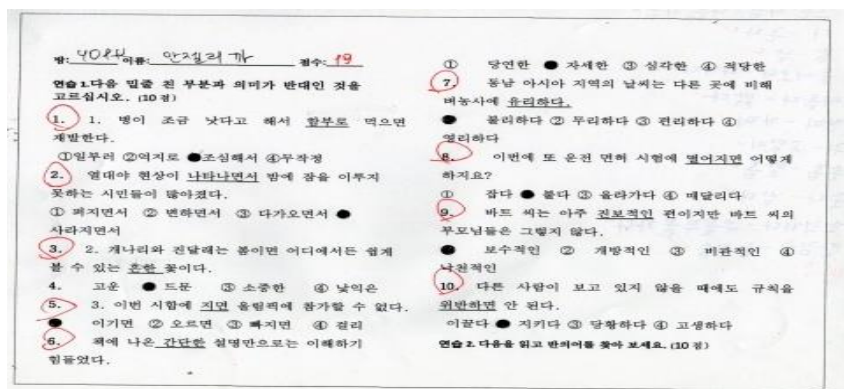 방: 401호 이름: 안젤리까 점수: 19
연습 1.다음 밑줄 친 부분과 의미가 반대인 것을
고르십시오. (10점)
1. 1. 병이 조금 낫다고 해서 함부로 먹으면
재발한다.
①일부러 ②억지로 ●조심해서 ④무작정
2. 열대야 현상이 나타나면서 밤에 잠을 이루지
못하는 시민들이 많아졌다.
① 퍼지면서 ② 변하면서 ③ 다가오면서 ●
사라지면서
3. 2. 개나리와 진달래는 봄이면 어디에서든 쉽게
볼 수 있는 흔한 꽃이다.
4. 고운 ● 드문 ③ 소중한 ④ 낯익은
5. 3. 이번 시합에 지면 올림픽에 참가할 수 없다.
● 이기면 ② 오르면 ③ 빠지면 ④ 걸리
6. 책에 나온 간단한 설명만으로는 이해하기
힘들었다.
① 당연한 ● 자세한 ③ 심각한 ④ 적당한
7. 동남 아시아 지역의 날씨는 다른 곳에 비해
벼농사에 유리하다.
● 불리하다 ② 무리하다 ③ 편리하다 ④
영리하다
8. 이번에 또 운전 면허 시험에 떨어지면 어떻게
하지요?
① 잡다 ● 붙다 ③ 올라가다 ④ 매달리다
9. 바트 씨는 아주 진보적인 편이지만 바트 씨의
부모님들은 그렇지 않다.
● 보수적인 ② 개방적인 ③ 비관적인 ④
낙천적인
10. 다른 사람이 보고 있지 않을 때에도 규칙을
위반하면 안 된다.
이끌다 ● 지키다 ③ 당황하다 ④ 고생하다
연습 2. 다음을 읽고 반의어를 찾아 보세요. (10점)